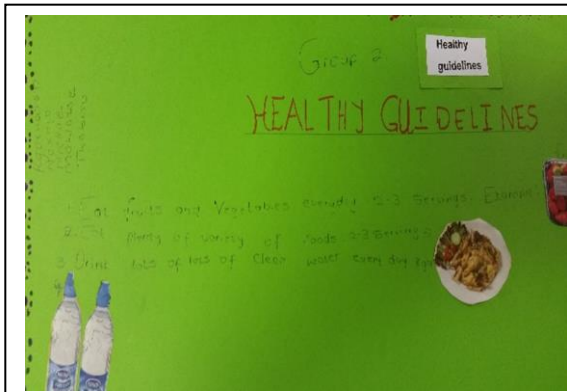 Group 2
Healthy
guidelines
HEALTHY GUIDELINES
1. Eat fruits and Vegetables everyday 2-3 servings. Example
2. Eat plenty of variety of foods 2-3 servings
3. Drink lots of lots of Clean water every day
4.